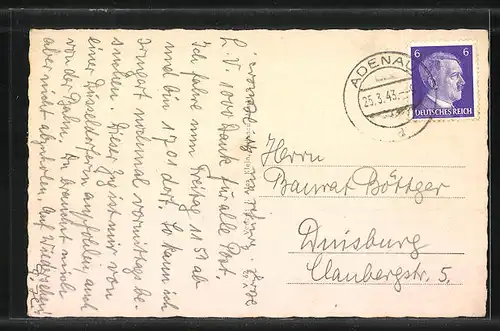 L. V. 1000 Dank für alle Post.
Ich fahre nun Freitag 11 51 ab
und bin 17 01 dort. So kann ich
irmgart nochmal vormittags be-
suchen. Dieser Zug ist mir von
einer Düsseldorferin empfohlen, auch
von der Bahn. Du brauchst mich
aber nicht abzuholen. Auf Wiedersehen!
ADENAU
25.3.43
a
6 6
DEUTSCHES REICH
Herrn
Baurat Böttger
Duisburg
Claubergstr. 5.